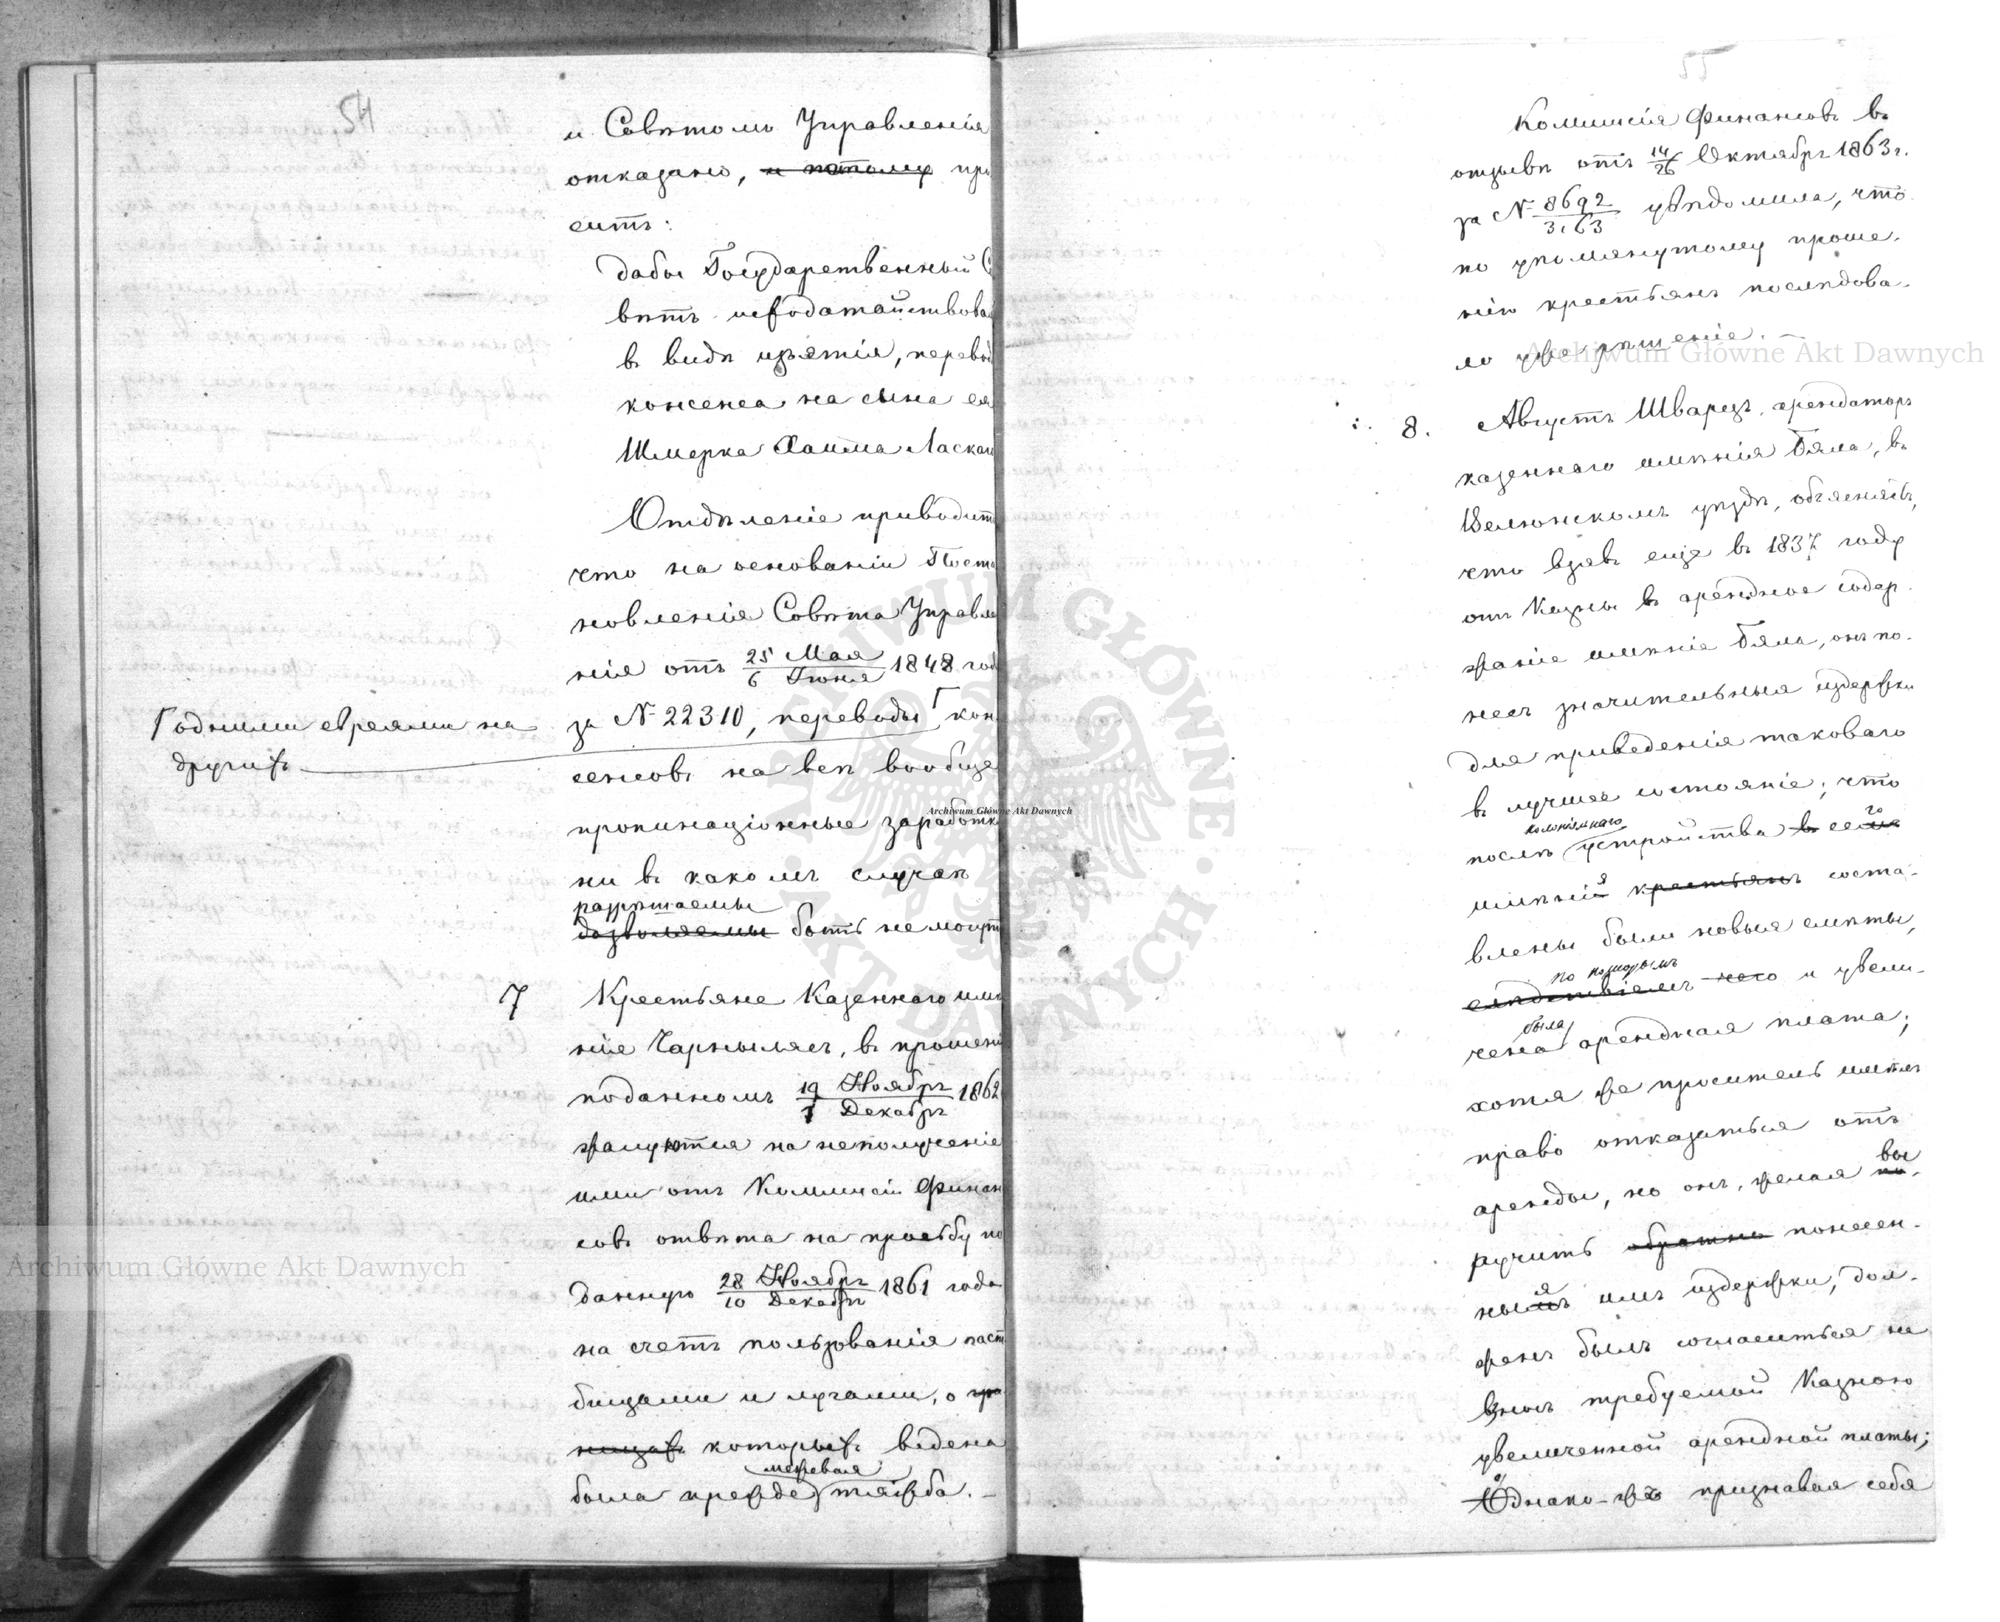 54
и Совѣтомъ Управленія
отказано, и потому про
ситъ:
дабы Государственный С
вѣтъ исходатайствовал
в видѣ изъятія, перевод
консенса на сына ея
Шмерка Хаима Ласкаго
Отдѣленіе приводитъ
что на основаніи Поста
новленія Совѣта Управле
нія отъ 25 Мая / 6 Іюня 1848 год
за № 22310, переводы Г кон
Годними евреями на
другихъ
сенсовъ на всѣ вообще
пропинаціонные заработк
ни в какомъ случаѣ
разрѣшаемы
дозволяемы быть не могутъ
7 Крестьяне Казеннаго имѣ
нія Чарныляс, въ прошені
поданномъ 19 Ноябрь / 1 Декабрь 1862
жалуются на неполученіе
ими отъ Коммисіи Финан
совъ отвѣта на просьбу по
данную 28 Ноябрь / 10 Декабрь 1861 года
на счетъ пользованія паст
бищами и лугами, о гра
ницахъ которыхъ ведена
межевая
была прежде тяжба. —
55
Комиссія Финансовъ въ
отзывѣ отъ 14/26 Октябрь 1863 г.
за № 8692/3163 увѣдомила, что
по упомянутому проше-
нію крестьянъ послѣдова-
ло уже рѣшеніе. —
8. Августъ Шварцъ, арендаторъ
казеннаго имѣнія Бяла, въ
Велюнскомъ уѣздѣ, объясняетъ,
что взявъ еще въ 1837 году
отъ Казны въ арендное содер-
жаніе имѣніе Бяла, онъ по-
несъ значительныя издержки
для приведенія таковаго
въ лучшее состояніе; что
колоніальнаго го
послѣ устройства въ семъ
имѣнія крестьянъ соста-
влены были новыя смѣты,
по которымъ
слѣдствіемъ чего и увели-
была
чена арендная плата;
хотя же проситель имѣлъ
право отказаться отъ
аренды, но онъ, желая вы
по-
ручить обратно понесен-
ныя имъ издержки, дол-
женъ былъ согласиться на
взносъ требуемой Казною
увеличенной арендной платы;
Однако-жъ признавая себя
Archiwum Główne Akt Dawnych
Archiwum Główne Akt Dawnych
Archiwum Główne Akt Dawnych
ARCHIWUM GŁÓWNE · AKT DAWNYCH ·